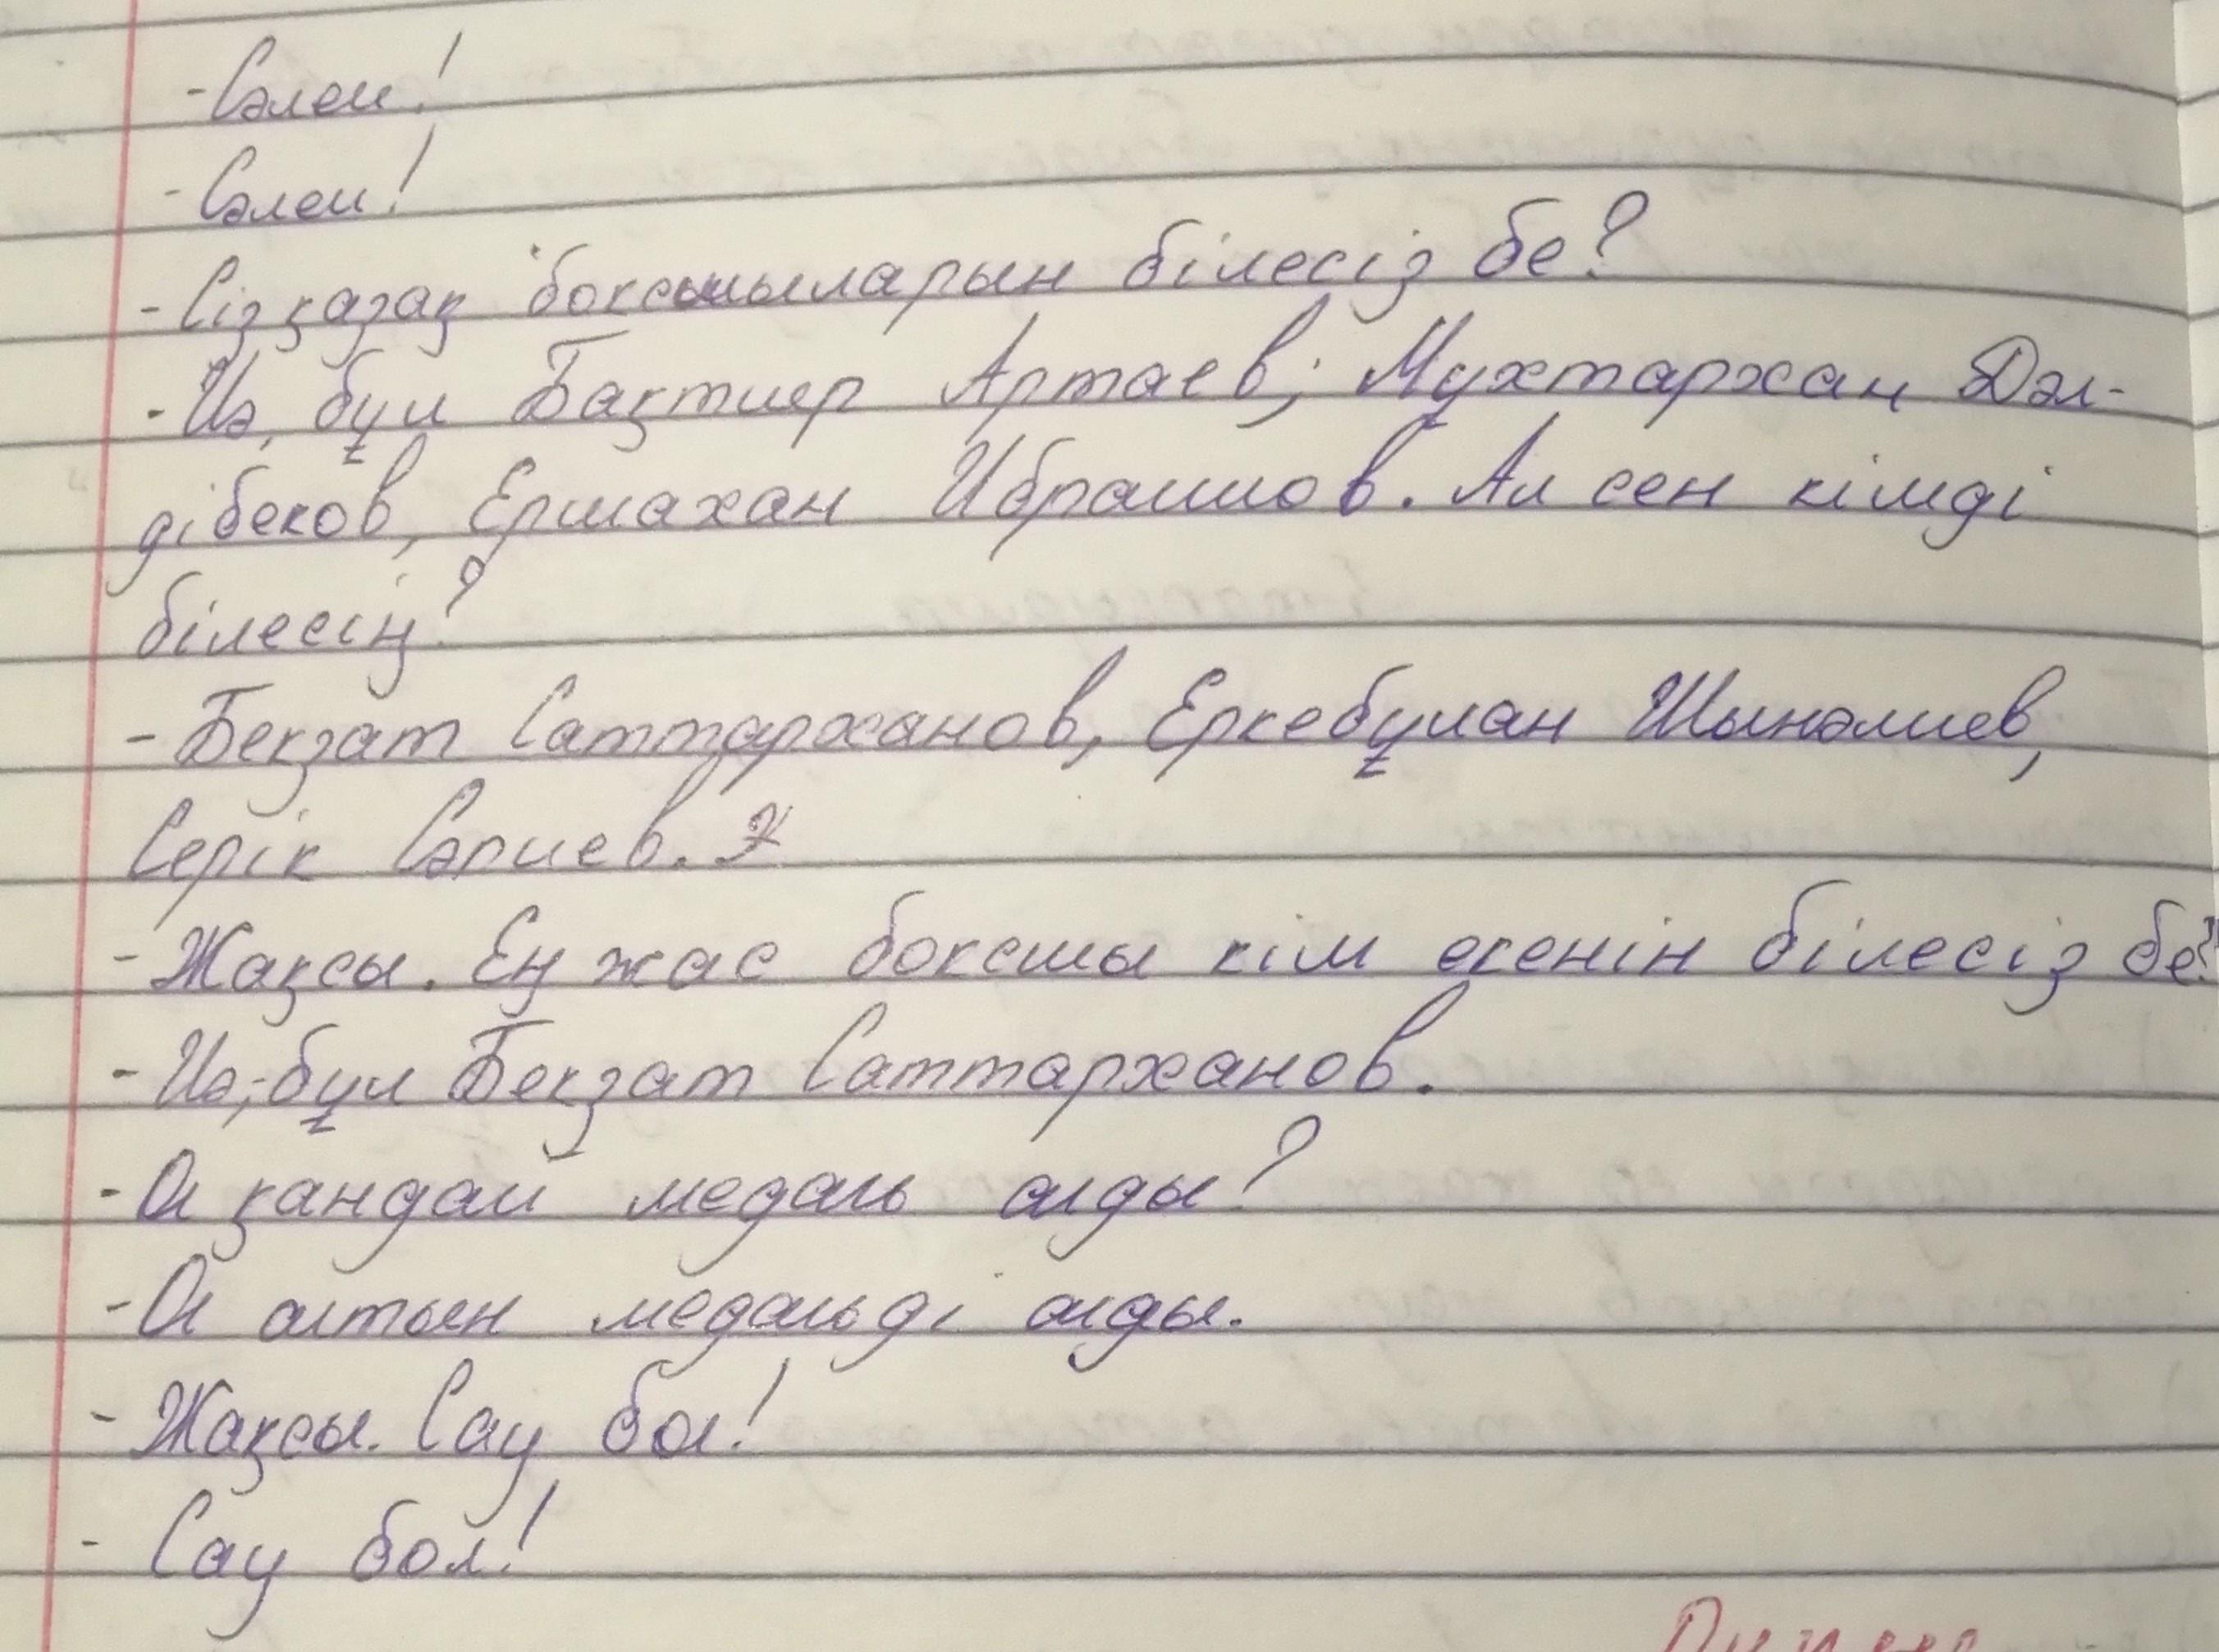 - Сәлем!
- Сәлем!
- Сіз қазақ боксшыларын білесіз бе?
- Иә, бұл Бақтияр Артаев, Мұхтархан Дәл-
дібеков, Ермахан Ибраимов. Ал сен кімді
білесің?
- Бекзат Саттарханов, Еркебұлан Шыналиев,
Серік Сәпиев.
- Жақсы. Ең жас боксшы кім екенін білесіз бе?
- Иә, бұл Бекзат Саттарханов.
- Ол қандай медаль алды?
- Ол алтын медальді алды.
- Жақсы. Сау бол!
- Сау бол!